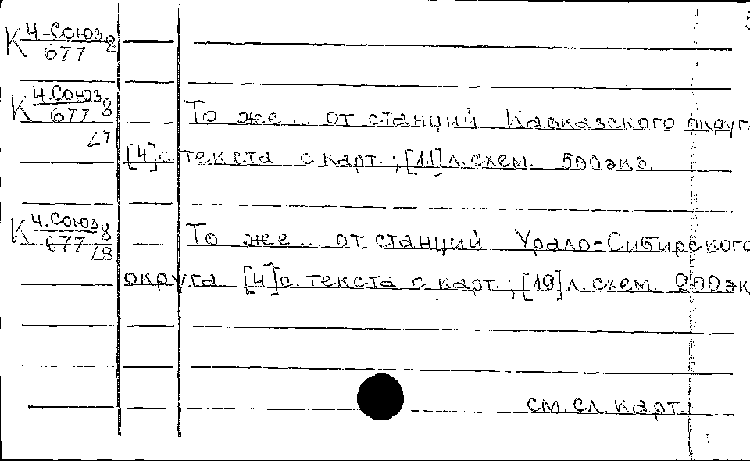 К 4-Союз 8
677
К 4.Союз 8 То же... от станций Кавказского округ
677
L7
[4]с. текста с карт.; [11]л. схем. 500 экз.
К 4.Союз 8 То же... от станций Урало-Сибирского
677 L8
округа [4]с. текста с карт.; [19]л. схем. 200 эк
см. сл. карт.